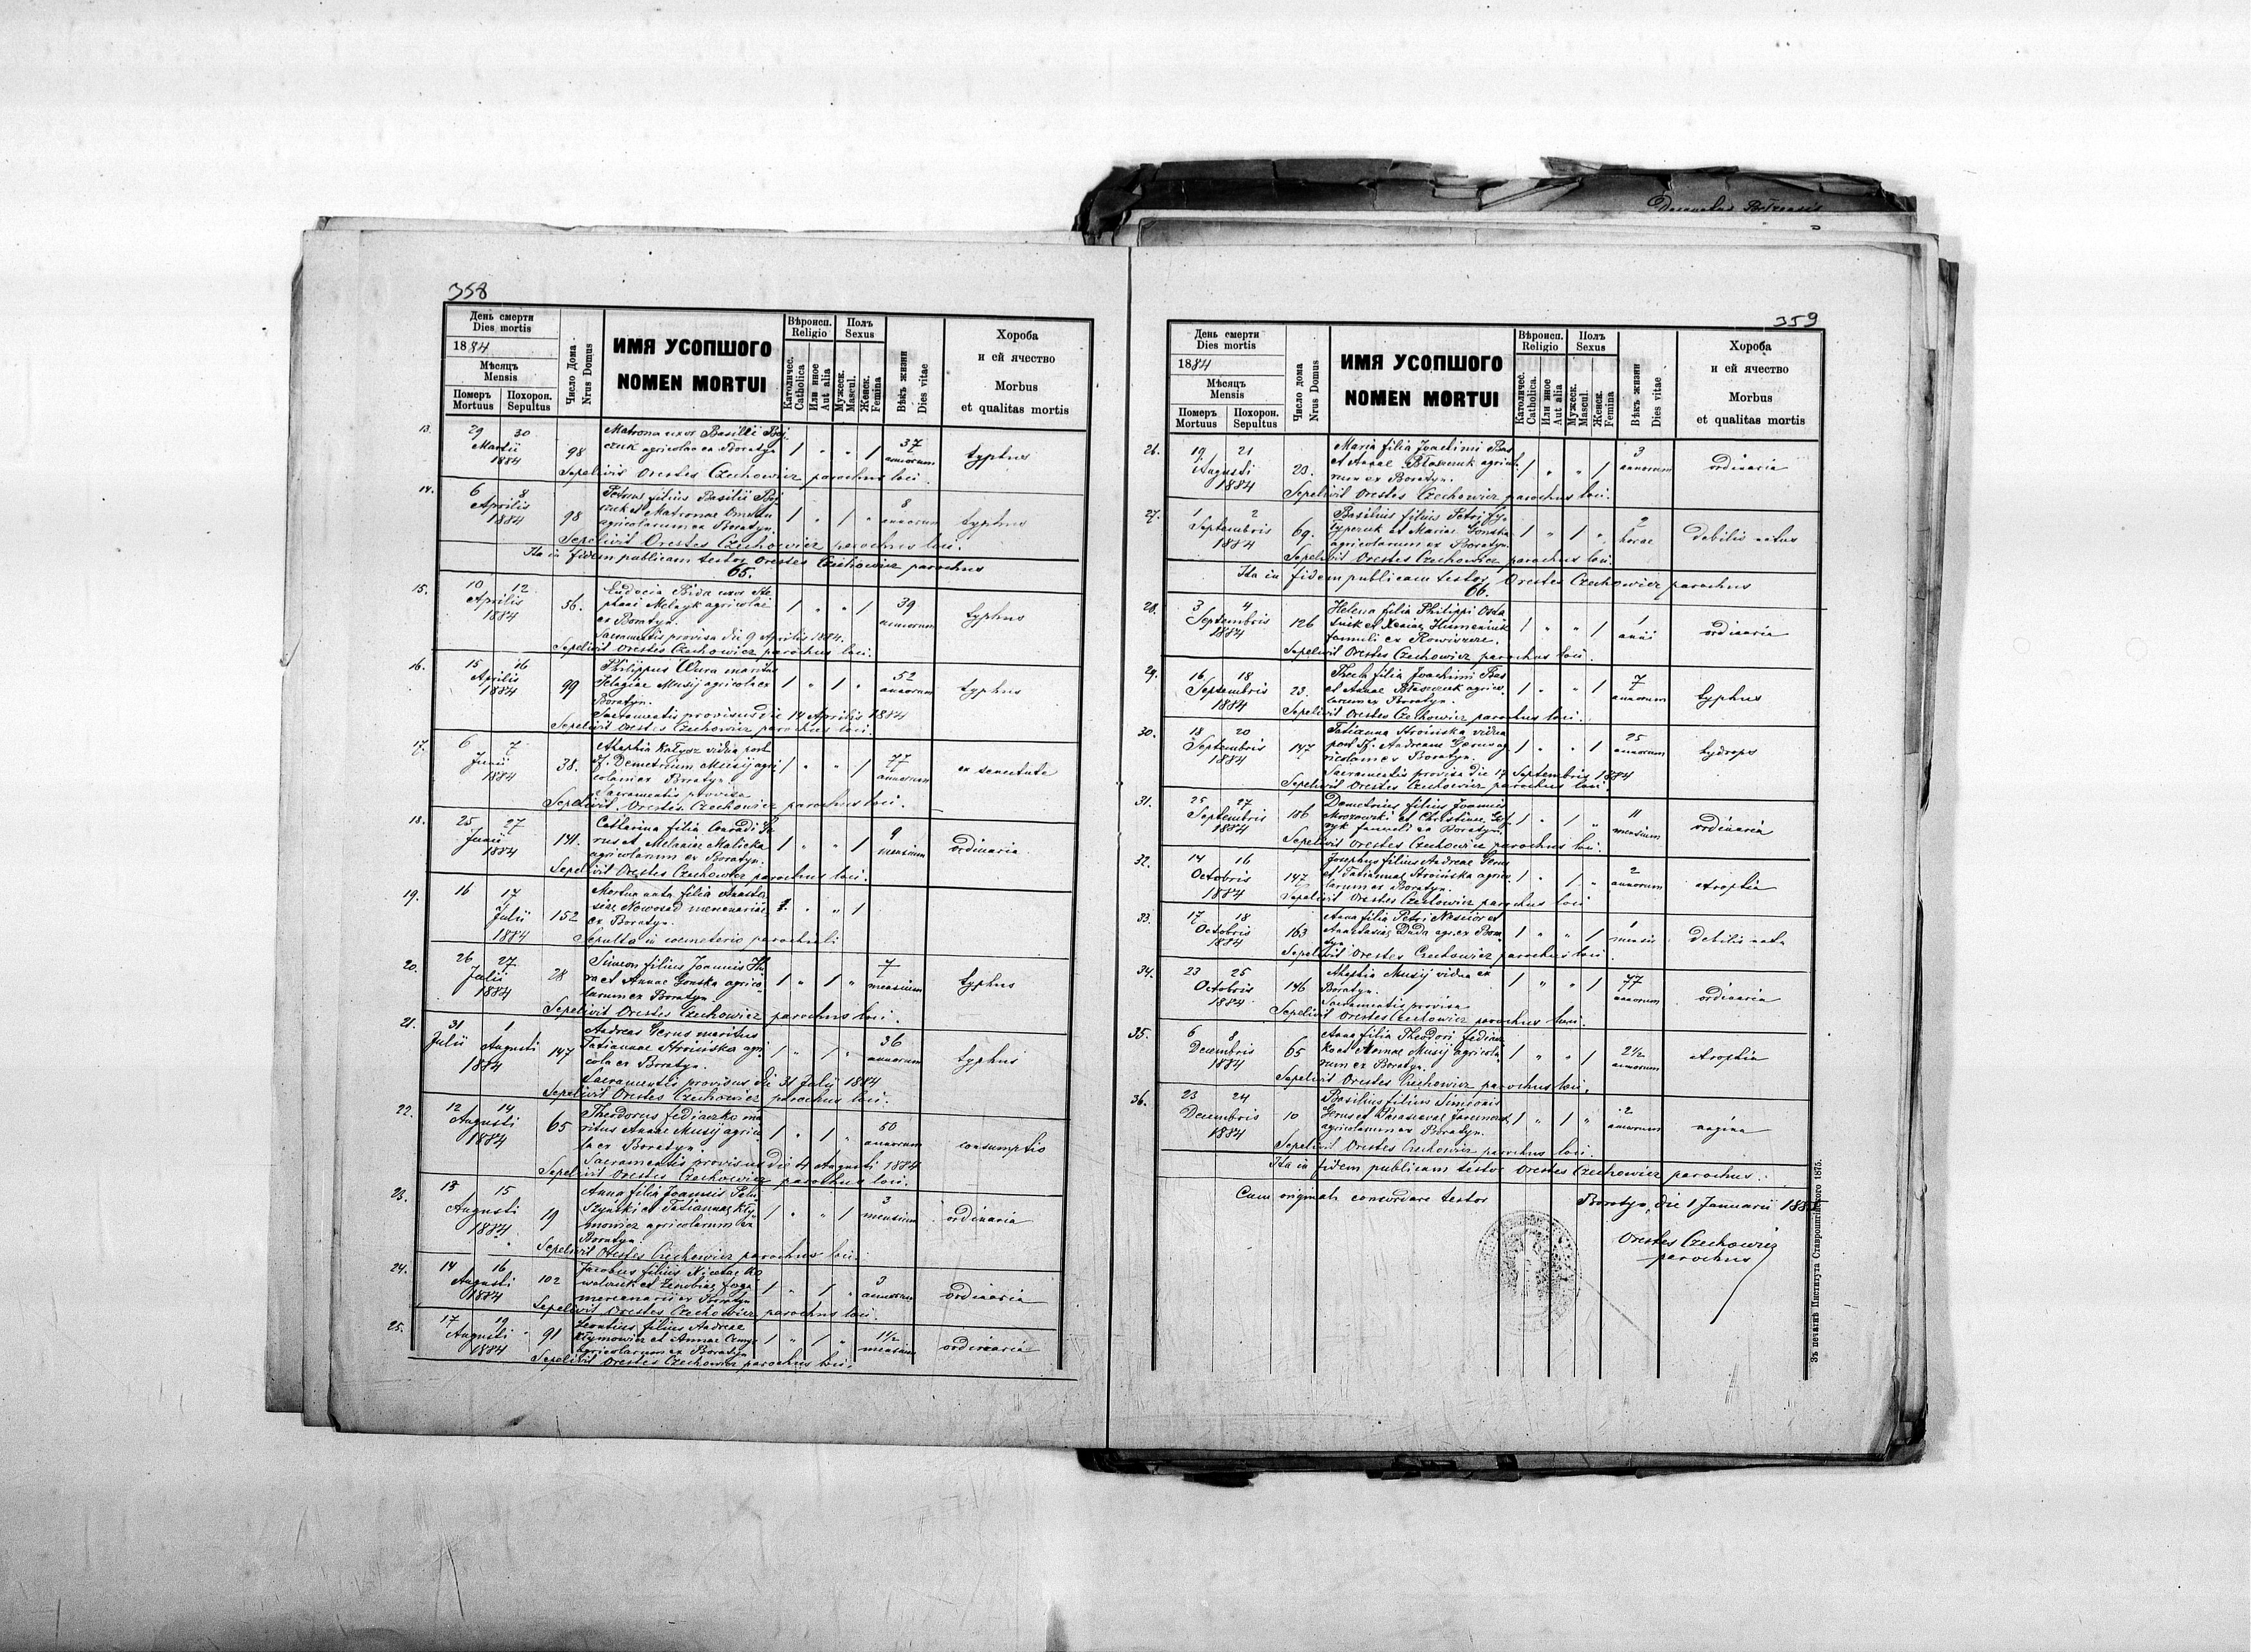 Decanatus Bełzensis
358
День смерти
Dies mortis
1884
Мѣсяць
Mensis
Померъ
Mortuus
Похорон.
Sepultus
Число Дома
Nrus Domus
ИМЯ УСОПШОГО
NOMEN MORTUI
Вѣроисп.
Religio
Католичес.
Catholica
Или иное
Aut alia
Полъ
Sexus
Мужеск.
Mascul.
Женск.
Femina
Вѣкъ жизни
Dies vitae
Хороба
и ей ячество
Morbus
et qualitas mortis
13. 29 30 Martii 1884 98 Matrona uxor Basilii Boj-
czuk agricolae ex Boratyn 1 " " 1 37 annorum typhus
Sepelivit Orestes Czechowicz parochus loci.
14. 6 8 Aprilis 1884 98 Petrus filius Basilii Boj-
czuk et Matronae
agricolarum ex Boratyn. 1 " 1 " 8 annorum typhus
Sepelivit Orestes Czechowicz parochus loci.
Ita in fidem publicam testor Orestes Czechowicz parochus
65.
15. 10 12 Aprilis 1884 56. Eudocia Bida uxor Ste-
phani Melnyk agricolae
ex Boratyn. 1 " " 1 39 annorum typhus
Sacramentis provisa die 9 Aprilis 1884.
Sepelivit Orestes Czechowicz parochus loci.
16. 15 16 Aprilis 1884 99 Philippus Wura maritus
Pelagiae Musij agricola ex
Boratyn. 1 " 1 " 52 annorum typhus
Sacramentis provisus die 14 Aprilis 1884
Sepelivit Orestes Czechowicz parochus loci.
17. 6 7 Junii 1884 38. Ahaphia Kałysz vidua post
Demetrium Musij agri-
colam ex Boratyn. 1 " " 1 77 annorum ex senectute
Sacramentis provisa
Sepelivit Orestes Czechowicz parochus loci.
18. 25 27 Junii 1884 141. Catharina filia Conradi Ge-
rus et Melaniae Malicka
agricolarum ex Boratyn. 1 " " 1 9 mensium ordinaria
Sepelivit Orestes Czechowicz parochus loci.
19. 16 17 Julii 1884 152 Mortua nata filia Anasta-
siae Nowosad mercenariae
ex Boratyn. 1 " " 1
Sepulta in coemeterio parochiali
20. 26 27 Julii 1884 28 Simeon filius Joannis
et Annae Gonska agrico-
larum ex Boratyn. 1 " 1 " 7 mensium typhus
Sepelivit Orestes Czechowicz parochus loci.
21. 31 Julii 1 Augusti 1884 147 Andreas Gerus maritus
Tatiannae Stroińska agri-
cola ex Boratyn. 1 " 1 " 36 annorum typhus
Sacramentis provisus die 31 Julii 1884
Sepelivit Orestes Czechowicz parochus loci.
22. 12 14 Augusti 1884 65 Theodorus Fediaczko ma-
ritus Annae Musij agrico-
la ex Boratyn. 1 " 1 " 50 annorum consumptio
Sacramentis provisus die 4 Augusti 1884
Sepelivit Orestes Czechowicz parochus loci.
23. 13 15 Augusti 1884 19 Anna filia Joannis
et Tatiannae Kły-
mowicz agricolarum ex
Boratyn. 1 " " 1 3 mensium ordinaria
Sepelivit Orestes Czechowicz parochus loci.
24. 14 16 Augusti 1884 102 Jacobus filius Nicetae Ko-
walczuk et Zenobiae
mercenarii ex Boratyn 1 " 1 " 3 annorum ordinaria
Sepelivit Orestes Czechowicz parochus loci.
25. 17 19 Augusti 1884 91 Leontius filius Andreae
Kłymowicz et Annae
agricolarum ex Boratyn 1 " 1 " 1½ mensium ordinaria
Sepelivit Orestes Czechowicz parochus loci.
359
День смерти
Dies mortis
1884
Мѣсяць
Mensis
Померъ
Mortuus
Похорон.
Sepultus
Число дома
Nrus Domus
ИМЯ УСОПШОГО
NOMEN MORTUI
Вѣроисп.
Religio
Католичес.
Catholica.
Или иное
Aut alia
Полъ
Sexus
Мужеск.
Mascul.
Женск.
Femina
Вѣкъ жизни
Dies vitae
Хороба
и ей ячество
Morbus
et qualitas mortis
26. 19 21 Augusti 1884 23. Maria filia Joachimi Bas
et Annae Błaszczuk agricola-
rum ex Boratyn. 1 " " 1 3 annorum ordinaria
Sepelivit Orestes Czechowicz parochus loci.
27. 1 2 Septembris 1884 69. Basilius filius Petri
et Mariae Gonska
agricolarum ex Boratyn 1 " 1 " 2 horae debilis natus
Sepelivit Orestes Czechowicz parochus loci.
Ita in fidem publicam testor Orestes Czechowicz parochus
66.
28. 3 4 Septembris 1884 126 Helena filia Philippi Osta-
et Xeniae Humeniuk
famuli ex 1 " " 1 1 anni ordinaria
Sepelivit Orestes Czechowicz parochus loci.
29. 16 18 Septembris 1884 23. Thecla filia Joachimi Bas
et Annae Błaszczuk agrico-
larum ex Boratyn. 1 " " 1 7 annorum typhus
Sepelivit Orestes Czechowicz parochus loci.
30. 18 20 Septembris 1884 147 Tatianna Stroińska vidua
post Andream Gerus ag-
ricolam ex Boratyn. 1 " " 1 25 annorum hydrops
Sacramentis provisa die 17 Septembris 1884
Sepelivit Orestes Czechowicz parochus loci.
31. 25 27 Septembris 1884 186 Demetrius filius Joannis
Mrozowski et Christinae
famuli ex Boratyn. 1 " 1 " 11 mensium ordinaria
Sepelivit Orestes Czechowicz parochus loci.
32. 14 16 Octobris 1884 147 Josephus filius Andreae Gerus
et Tatiannae Stroińska agrico-
larum ex Boratyn. 1 " 1 " 2 annorum atrophia
Sepelivit Orestes Czechowicz parochus loci
33. 17 18 Octobris 1884 163 Anna filia Petri et
Anastasiae Duda agr. ex Bora-
tyn 1 " " 1 1 mensis debilis nata
Sepelivit Orestes Czechowicz parochus loci.
34. 23 25 Octobris 1884 146 Ahaphia Musij vidua ex
Boratyn. 1 " " 1 77 annorum ordinaria
Sacramentis provisa
Sepelivit Orestes Czechowicz parochus loci.
35. 6 8 Decembris 1884 65 Anna filia Theodori Fediacz-
ko et Annae Musij agricola-
rum ex Boratyn. 1 " " 1 2½ annorum atrophia
Sepelivit Orestes Czechowicz parochus loci.
36. 23 24 Decembris 1884 10 Basilius filius Simeonis
Gerus et Parascevae
agricolarum ex Boratyn. 1 " 1 " 2 annorum angina
Sepelivit Orestes Czechowicz parochus loci.
Ita in fidem publicam testor Orestes Czechowicz parochus.
Cum originali concordare testor
Boratyn, die 1 Januarii 188
Orestes Czechowicz
parochus
Зъ печатнѣ Института Ставропигійского 1875.